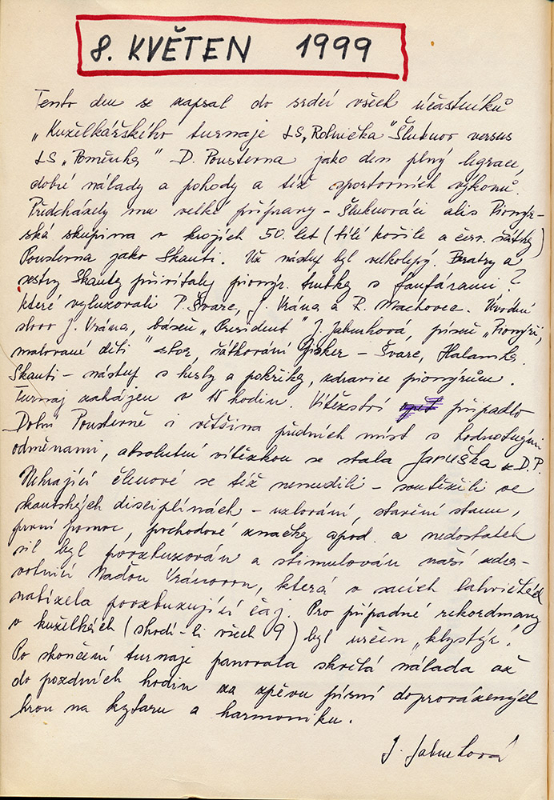 8. KVĚTEN 1999
Tento den se zapsal do srdcí všech účastníků
„Kuželkářského turnaje LS „Rolnička" Šluknov versus
LS „Poměnka" D. Poustevna jako den plný legrace,
dobré nálady a pohody a též sportovních výkonů.
Předcházely mu velké přípravy - Šluknováci alias Pionýr-
ská skupina v krojích 50. let (bílé košile a červ. šátky)
Poustevna jako Skauti. Už nástup byl velkolepý. Bratry a
sestry Skauty přivítaly pionýr. fanfárami,
které vyluzovali P. Švarc, J. Vrána a R. Machovec. Úvodní
slovo J. Vrána, báseň „Prezident" J. Jakubková, píseň „Pionýři,
malované děti" sbor, šátkování - Švarc, Halamka.
Skauti - nástup s hesly a pokřiky, zdravice pionýrům.
Turnaj zahájen v 15 hodin. Vítězství připadlo
Dolní Poustevně i většina předních míst s hodnotnými
odměnami, absolutní vítězkou se stala Jaruška z D.P.
Nehrající členové se též nenudili - soutěžili ve
skautských disciplínách - uzlování, stavění stanu,
první pomoc, pochodové značky apod. a nedostatek
sil byl povzbuzován a stimulován naší zdra-
votnicí Naďou Vránovou, která v lahvičce
nabízela povzbuzující čaj. Pro případné rekordmany
v kuželkách (shodí-li všech 9) byl určen „klystýr".
Po skončení turnaje panovala skvělá nálada až
do pozdních hodin za zpěvu písní doprovázených
hrou na kytaru a harmoniku.
J. Jakubková